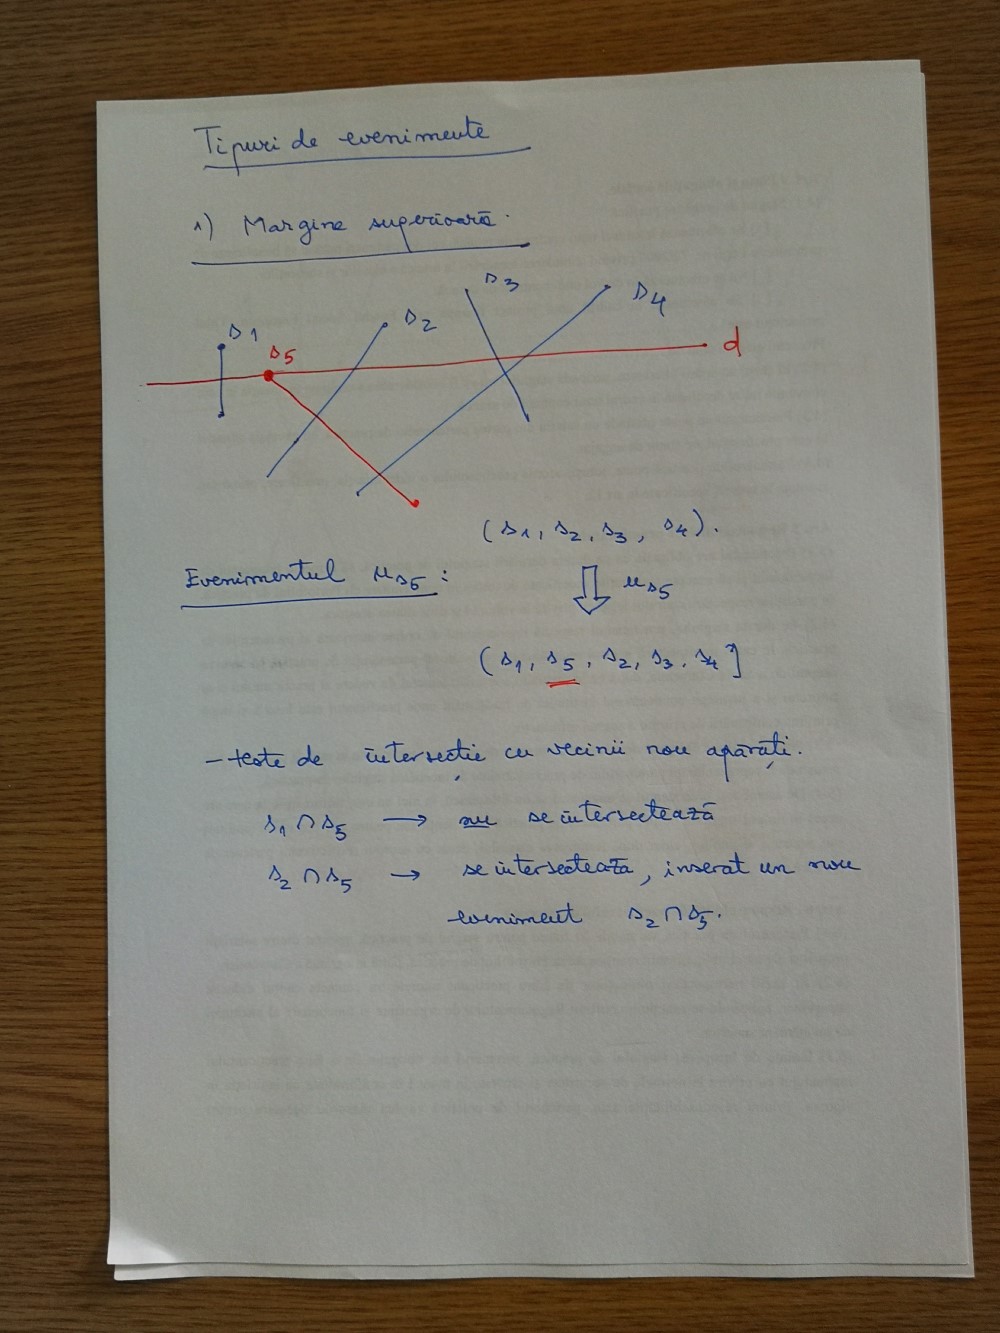 Tipuri de evenimente
1) Margine superioară.
s1
s2
s3
s4
s5
d
(s1, s2, s3, s4).
Evenimentul μs5:
μs5
(s1, s5, s2, s3, s4]
- teste de intersecție cu vecinii nou apăruți.
s1 ∩ s5 → nu se intersectează
s2 ∩ s5 → se intersectează, inserat un nou
eveniment s2 ∩ s5.